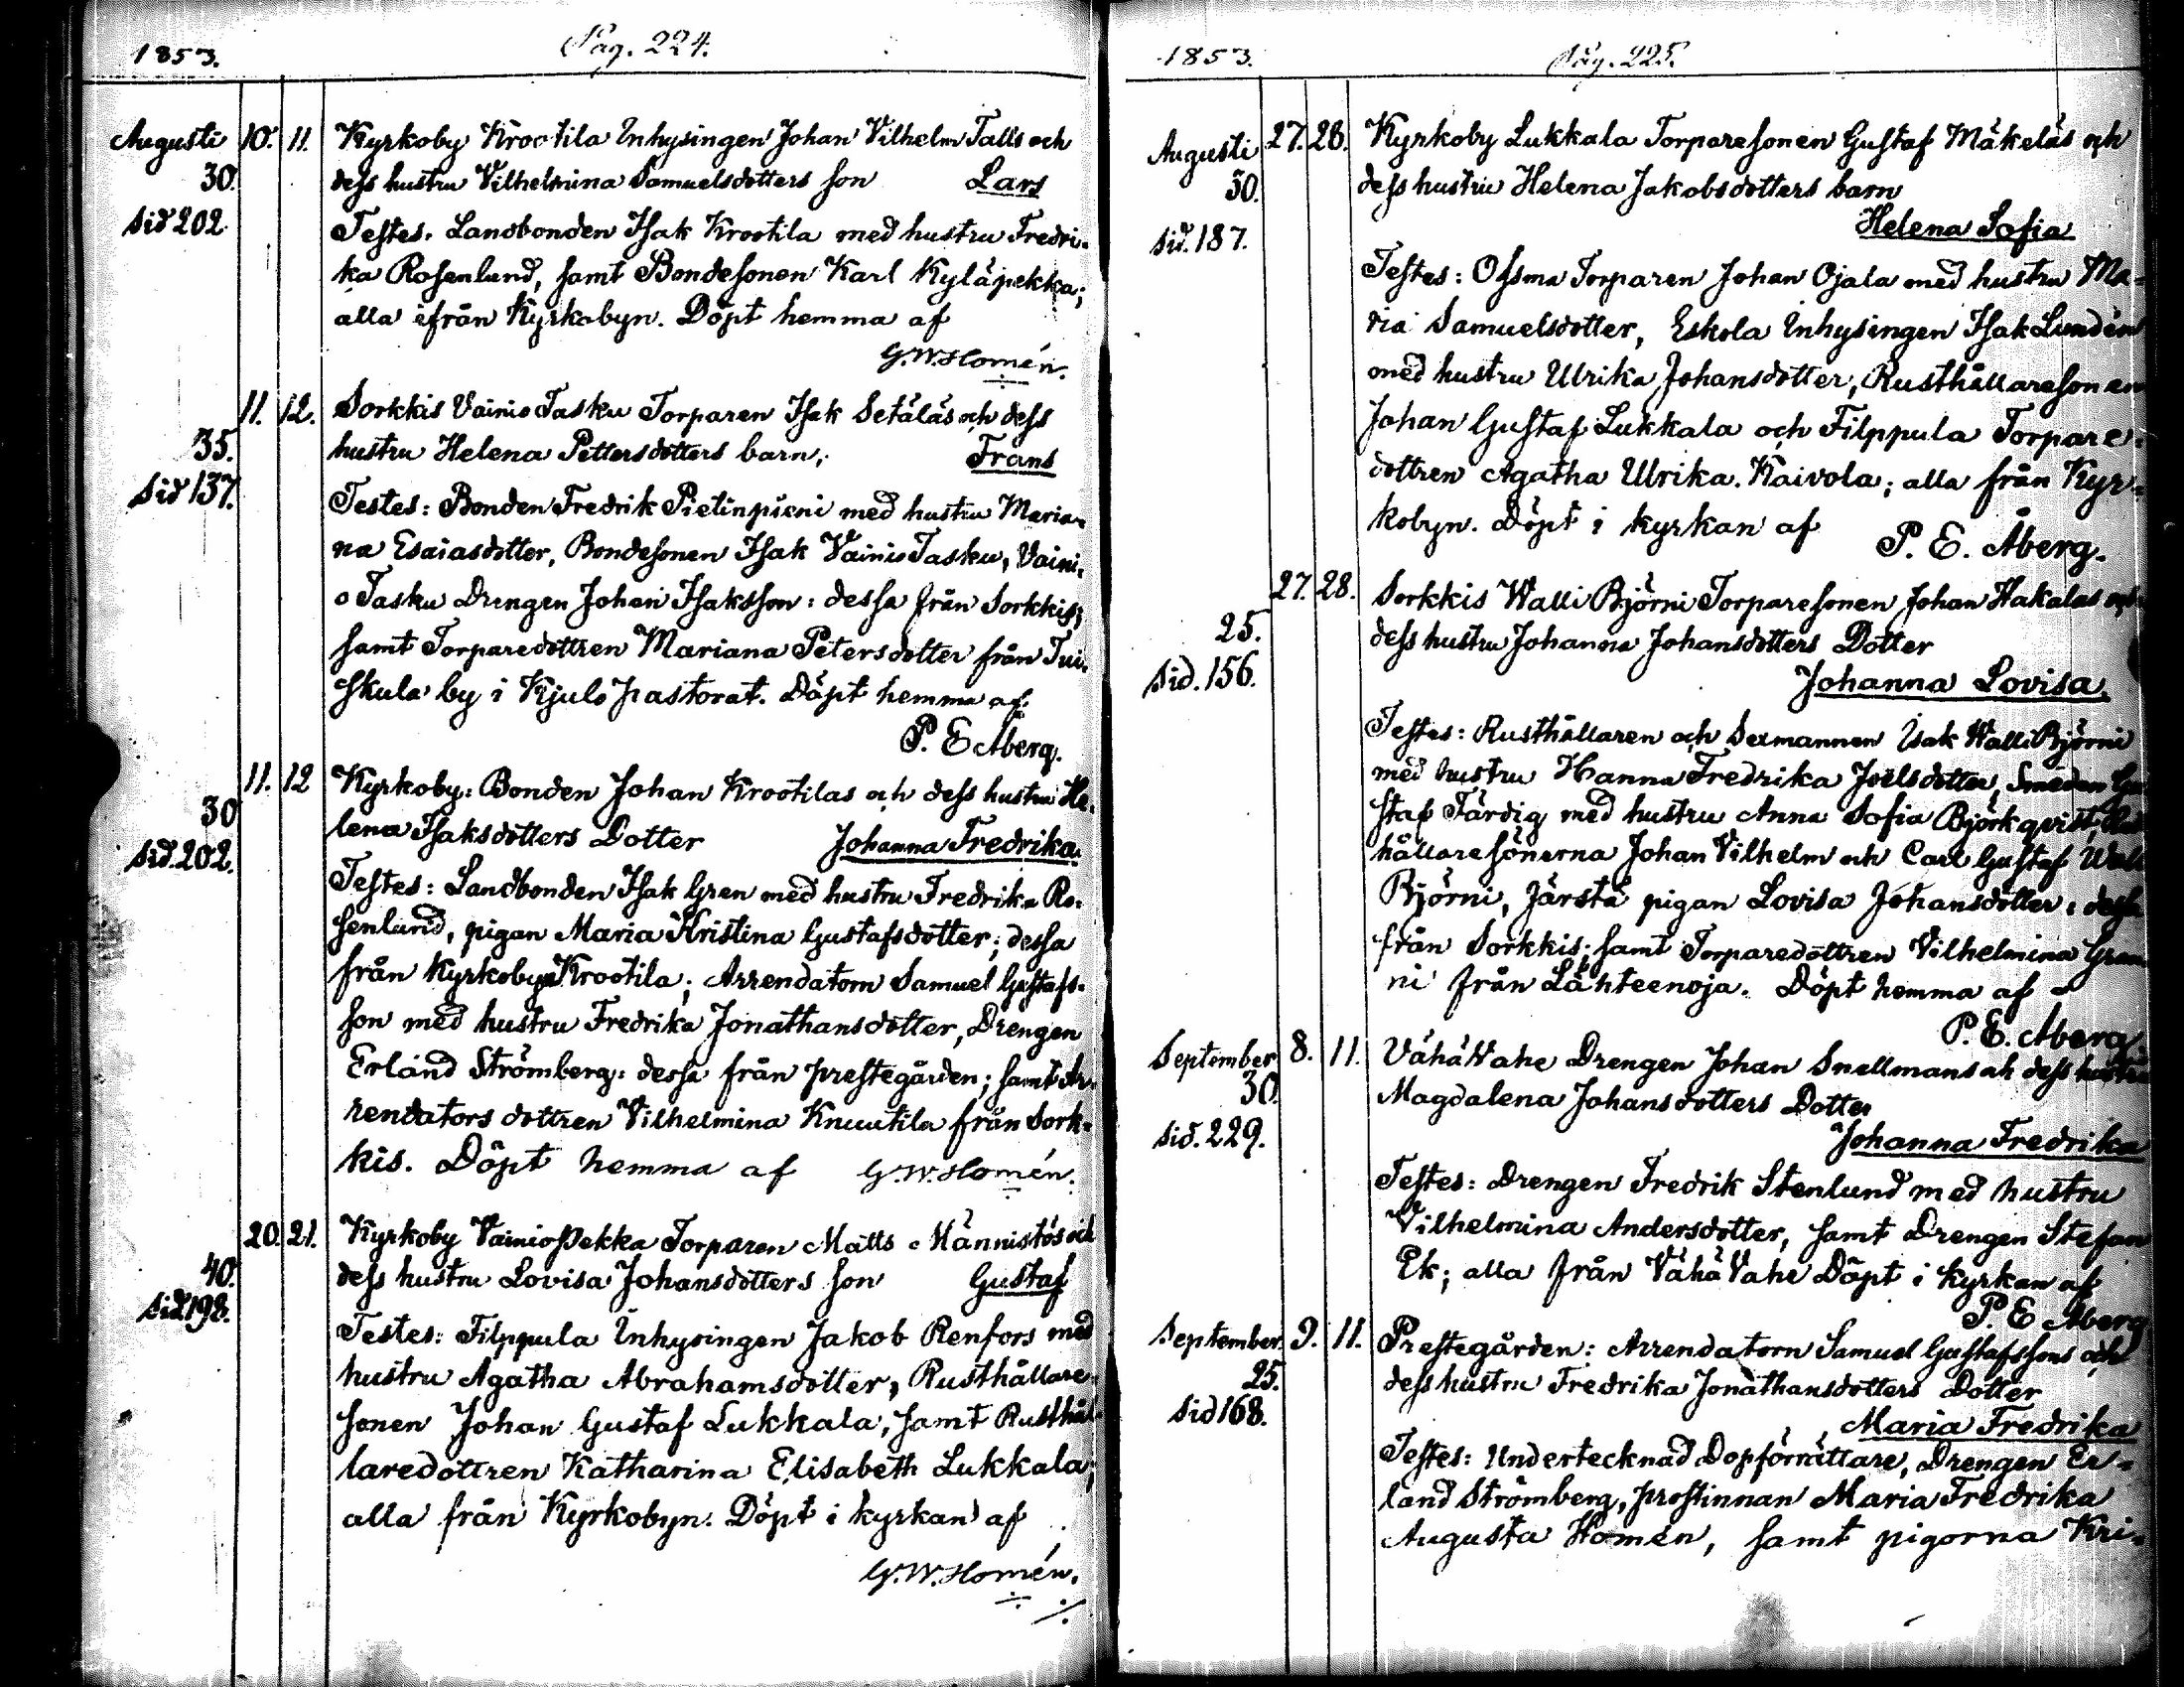 1853.
Pag. 224.
Augusti 10. 11. Kyrkoby Krootila Inhysingen Johan Vilhelm Talls och
30. dess hustru Vilhelmina Samuelsdotters son Lars
Sid 202. Testes. Landbonden Isak Krootila med hustru Fredri-
ka Rosenlund, samt Bondesonen Karl Kyläpekka;
alla ifrån Kyrkobyn. Döpt hemma af
G.W. Homén.
11. 12. Sorkkis Vainio Tasku Torparen Isak Setäläs och dess
35. hustru Helena Pettersdotters barn; Frans
Sid 137. Testes: Bonden Fredrik Pietinpieni med hustru Maria-
na Esaiasdotter, Bondesonen Isak Vainio Tasku, Vaini-
o Tasku Drengen Johan Isaksson: dessa från Sorkkis;
samt Torparedottren Mariana Petersdotter från Tui-
skula by i Kjulo pastorat. Döpt hemma af
P. E Åberg.
11. 12 Kyrkoby: Bonden Johan Krootilas och dess hustru He-
30 lena Isaksdotters Dotter Johanna Fredrika.
Sid. 202. Testes: Landbonden Isak Gren med hustru Fredrika Ro-
senlund, pigan Maria Kristina Gustafsdotter; dessa
från Kyrkoby Krootila; Arrendatorn Samuel Gustafs-
son med hustru Fredrika Jonathansdotter, Drengen
Erland Strömberg: dessa från prestegården; samt Ar-
rendatorsdottren Vilhelmina Knuutila från Sork-
kis. Döpt hemma af G.W. Homén.
20. 21. Kyrkoby VainioPekka Torparen Matts Männistös och
40. dess hustru Lovisa Johansdotters son Gustaf
Sid 198. Testes: Filppula Inhysingen Jakob Renfors med
hustru Agatha Abrahamsdotter, Rusthållare-
sonen Johan Gustaf Lukkala, samt Rusthål-
laredottren Katharina Elisabeth Lukkala;
alla från Kyrkobyn. Döpt i kyrkan af
G.W. Homén.
1853.
Pag. 225.
Augusti 27. 28. Kyrkoby Lukkala Torparesonen Gustaf Mäkeläs och
30. dess hustru Helena Jakobsdotters barn
Helena Sofia
Sid. 187. Testes: Ossma Torparen Johan Ojala med hustru Ma-
ria Samuelsdotter, Eskola Inhysingen Isak Lundén
med hustru Ulrika Johansdotter, Rusthållaresonen
Johan Gustaf Lukkala och Filppula Torpare-
dottren Agatha Ulrika Kaivola; alla från Kyr-
kobyn. Döpt i kyrkan af P. E. Åberg.
27. 28. Sorkkis Walli Björni Torparesonen Johan Hakalas och
25. dess hustru Johanna Johansdotters Dotter
Sid. 156. Johanna Lovisa
Testes: Rusthållaren och Sexmannen Isak Walli Björni
med hustru Hanna Fredrika Joëlsdotter, Smeden Gu
staf Färdig med hustru Anna Sofia Björkqvist,
hållaresönerna Johan Vilhelm och Carl Gustaf Walli
Björni, Järstä pigan Lovisa Johansdotter: dessa
från Sorkkis; samt Torparedottren Vilhelmina
ni från Lähteenoja. Döpt hemma af
P. E. Åberg
September 8. 11. VähäVahe Drengen Johan Snellmans och dess hustru
30. Magdalena Johansdotters Dotter
Sid. 229. Johanna Fredrika
Testes: Drengen Fredrik Stenlund med hustru
Vilhelmina Andersdotter, samt Drengen Stefan
Ek; alla från VähäVahe Döpt i kyrkan af
P. E Åberg
September 9. 11. Prestegården: Arrendatorn Samuel Gustafssons och
25. dess hustru Fredrika Jonathansdotters Dotter
Sid 168. Maria Fredrika
Testes: Undertecknad Dopförrättare, Drengen Er-
land Strömberg, prostinnan Maria Fredrika
Augusta Homén, samt pigorna Kri-